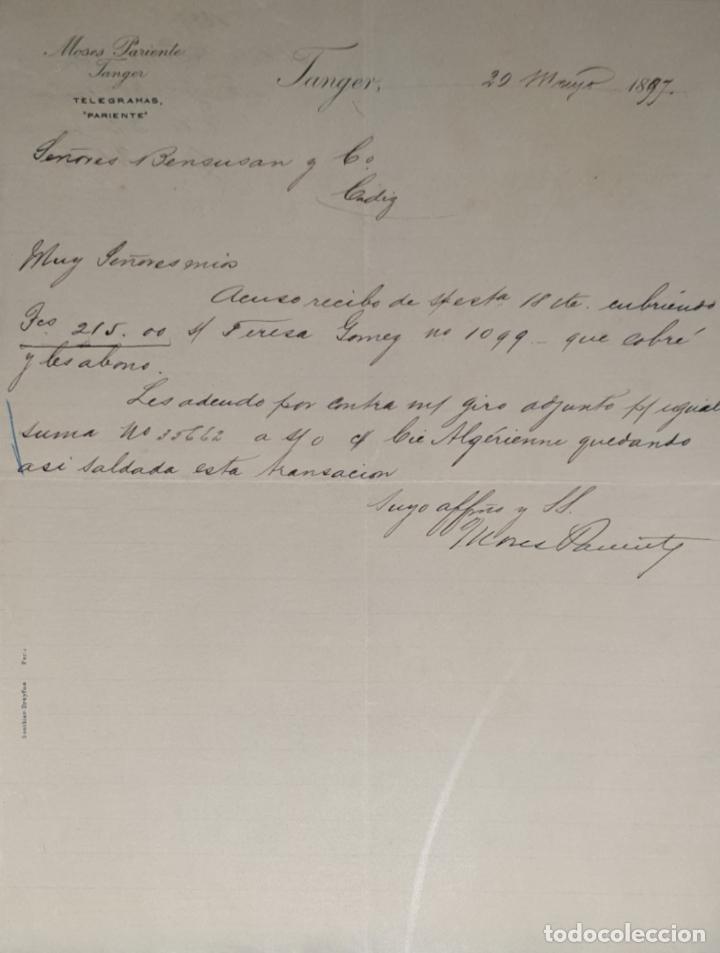 Moses Pariente
Tanger
TELEGRAMAS,
"PARIENTE"
Tanger, 20 Mayo 1897.
Señores Bensusan y Co.
Cadiz
Muy Señores mios
Acuso recibo de s/ esta 18 cte. cubriendo
Fcs 215.00 s/ Teresa Gomez no 1099 - que cobré
y les abono.
Les adeudo por contra m/ giro adjunto p/ igual
suma No 33662 a s/o c/ Cie Algérienne quedando
asi saldada esta transacion
Suyo affmo y SS.
Moses Pariente
todocoleccion